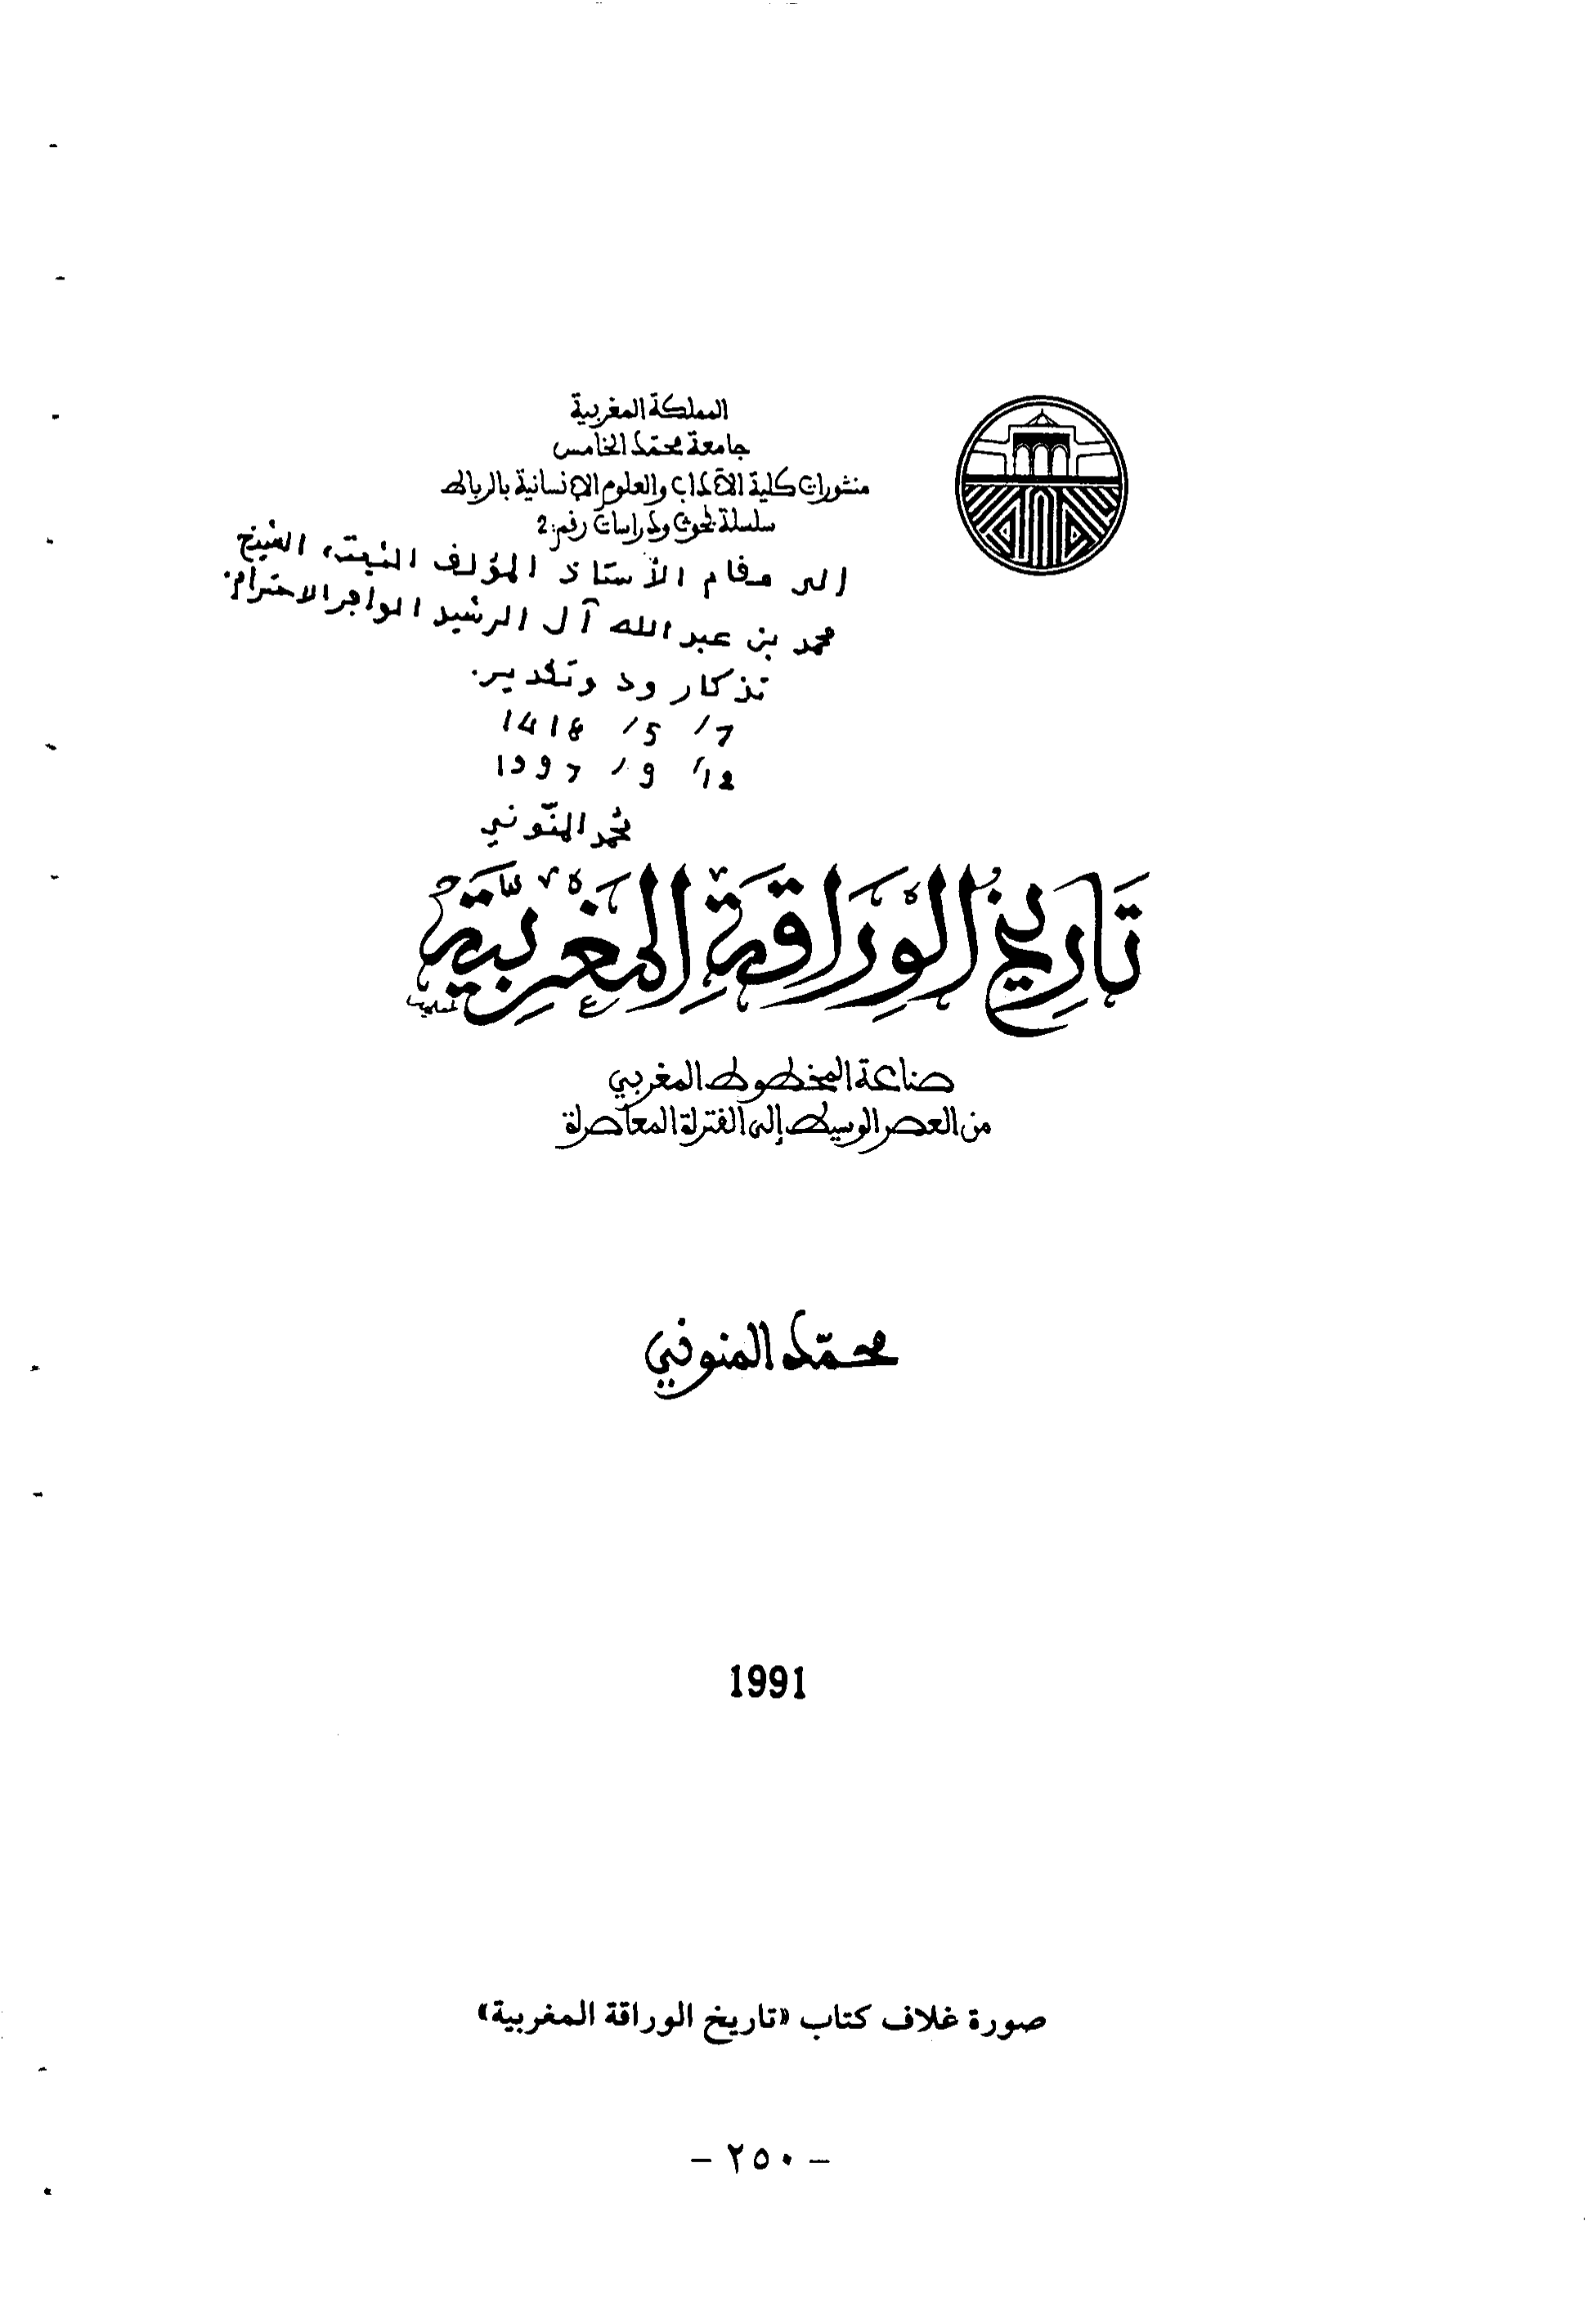 المملكة المغربية
جامعة محمد الخامس
منشورات كلية الآداب والعلوم الإنسانية بالرباط
سلسلة بحوث ودراسات رقم: 2
إلى مقام الأستاذ المؤلف الثبت، الشيخ
محمد بن عبد الله آل الرشيد الوافر الاحترام.
تذكار ود وتقدير.
7/ 5/ 1418
12/ 9/ 1997
محمد المنّوني
تَارِيخُ الْوِرَاقَةِ الْمَغْرِبِيَّةِ
صناعة المخطوط المغربي
من العصر الوسيط إلى الفترة المعاصرة
محمّد المنوني
1991
صورة غلاف كتاب «تاريخ الوراقة المغربية»
– ٢٥٠ –